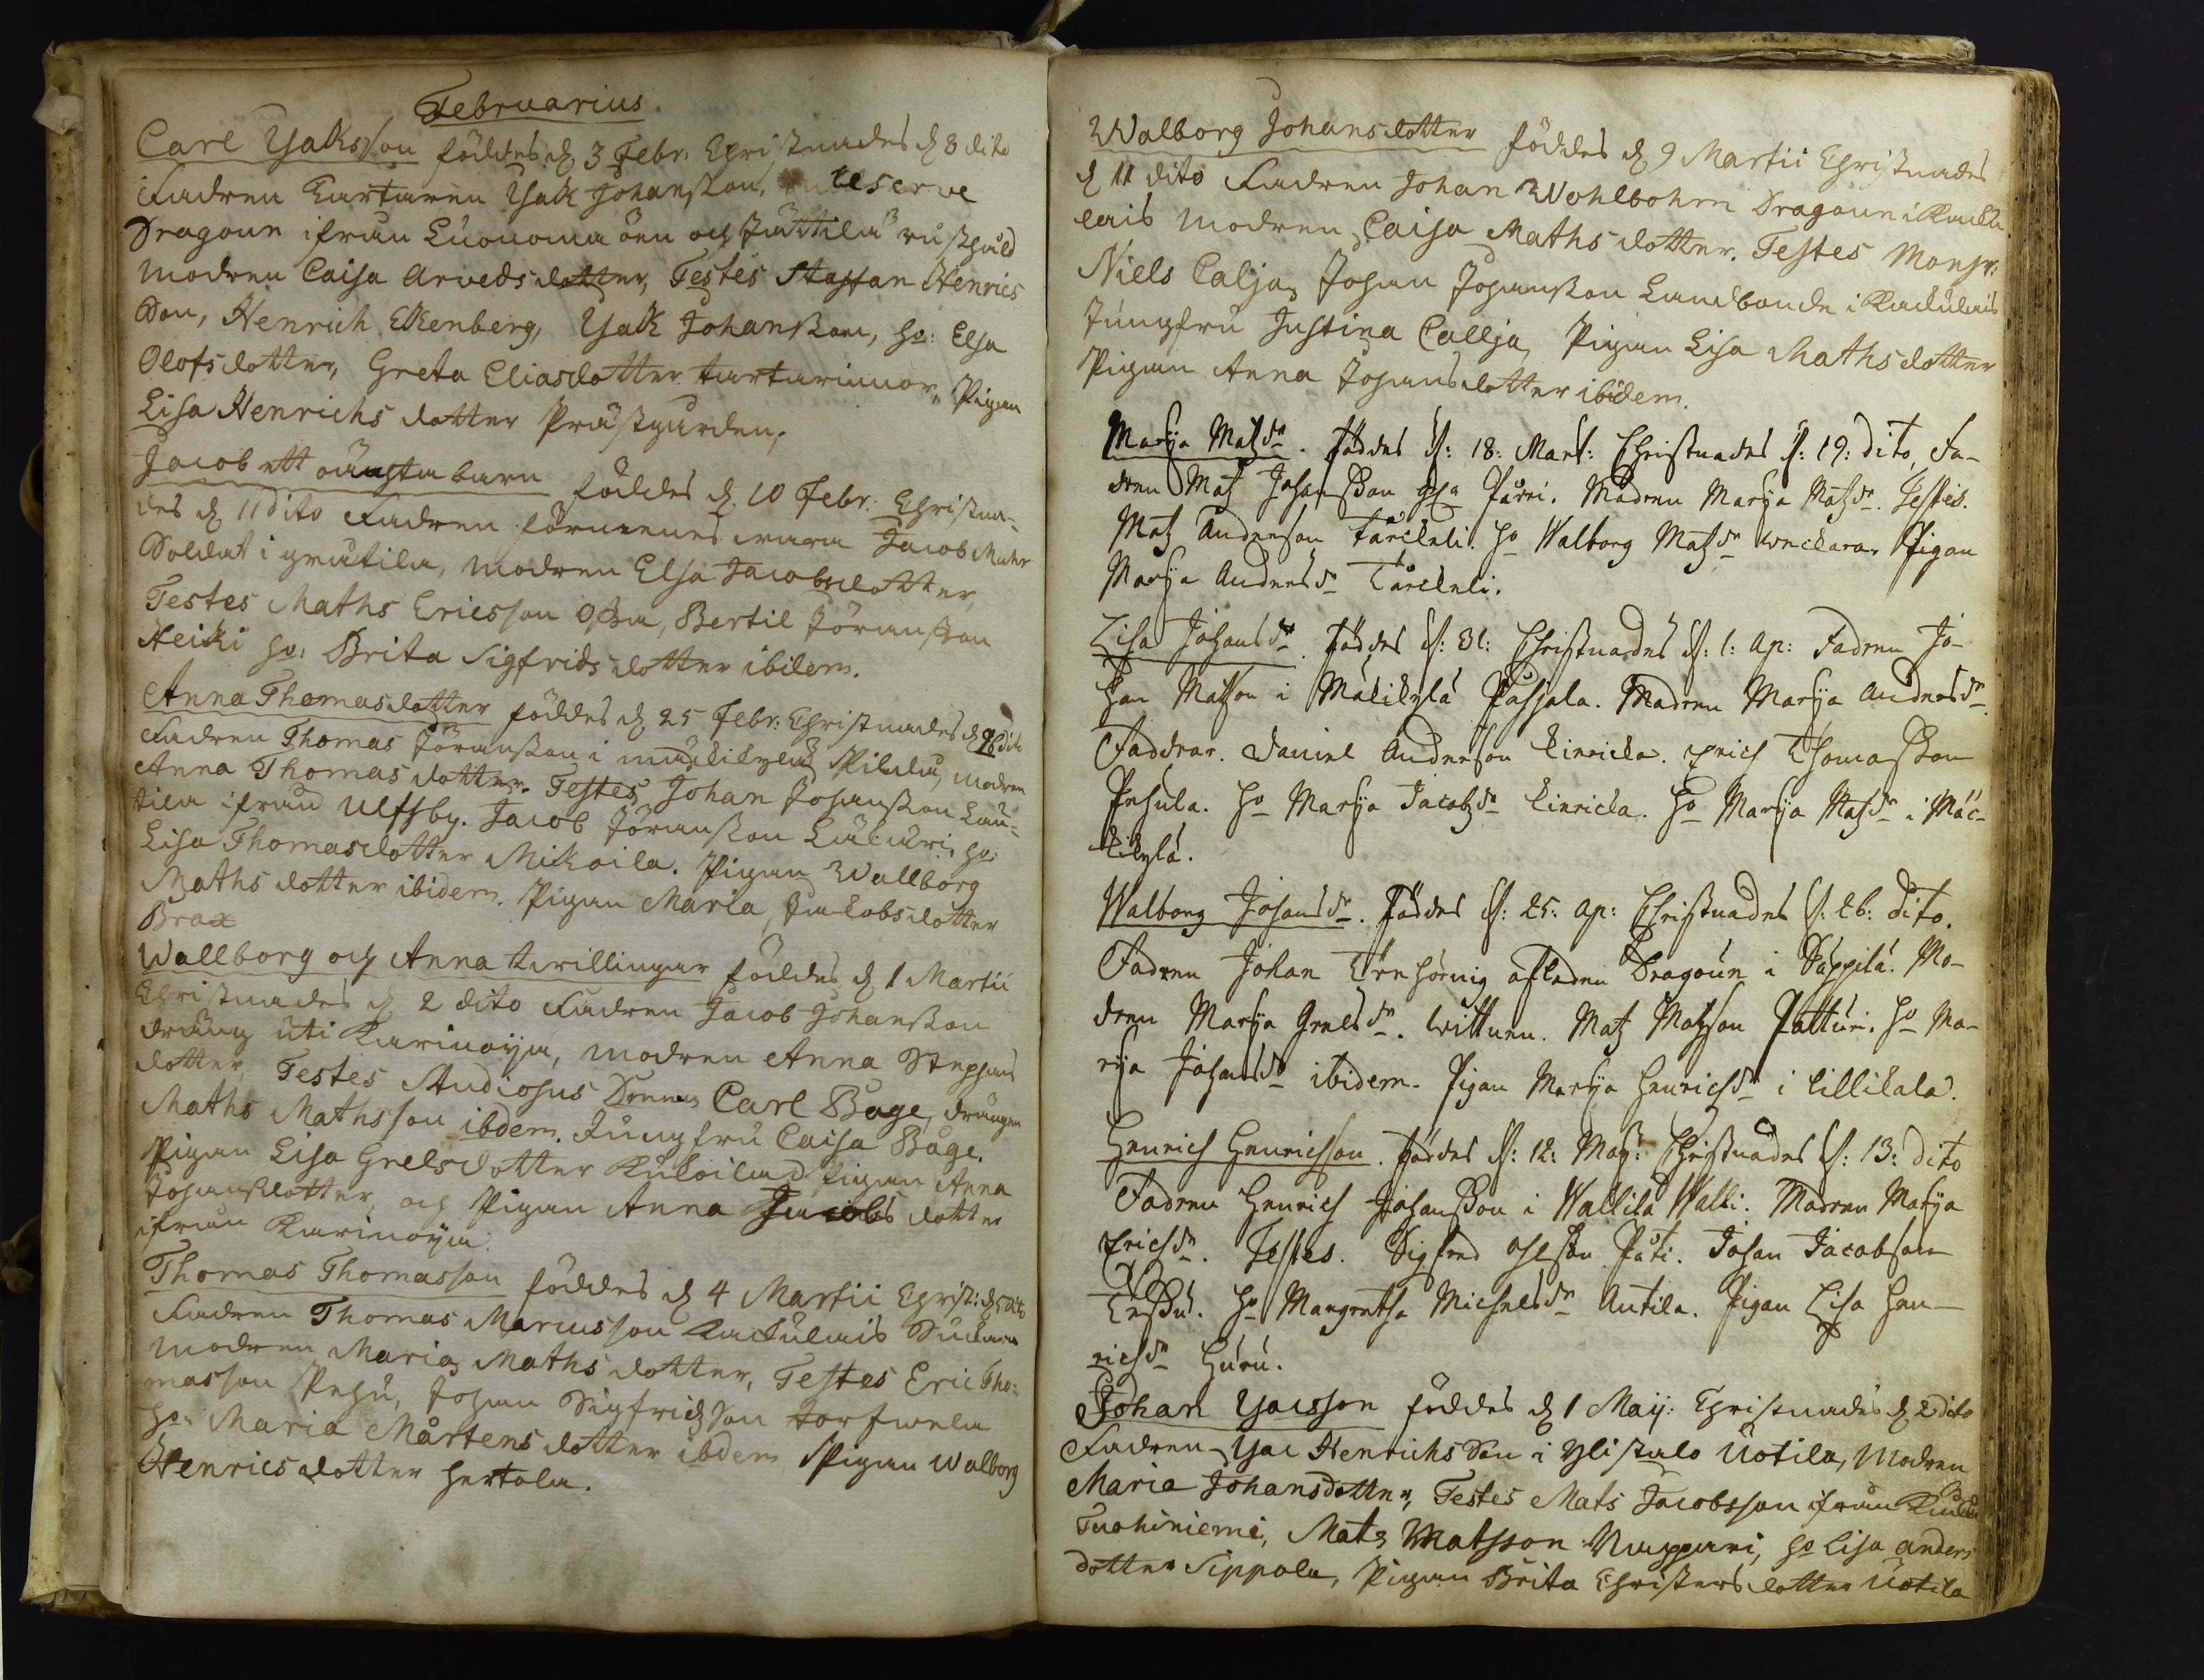 Februarius.
Carl Yaksson föddes d 3 Febr. Christnades d 8 dito
Fadren Tartaren Yak Johansson, reserve
Dragoun ifrån Luonoma öen och Juttila rusthåld
modren Caisa Arvedsdotter, Testes Staffan Henrics
Son, Henrich Ekenberg, Yak Johansson, ho: Elsa
Olofsdotter, Greta Eliasdotter tartarinnor, Pigan
Lisa Henrichs dotter Prästgården,
Jacob ett oäagta barn föddes d 10 Febr. Christna-
des d 11 dito Fadren förmenes wara Jacob Muhr
Soldat i Anutila, modren Elsa Jacobsdotter,
Testes Maths Ericsson Ojba, Bertil Jöransson
Heiki ho: Brita Sigfrids dotter ibidem.
Anna Thomasdotter föddes d 25 Febr. Christnades d 26 dito
Fadren Thomas Jöransson i mäkikylä Pilalu, modren
Anna Thomas dotter. Testes Johan Johansson Lau-
tila ifrån Ulfsby. Jacob Jöransson Lukuri, ho:
Lisa Thomasdotter Mikoila. Pigan Wallborg
Maths dotter ibidem. Pigan Maria Jakobsdotter
Brax
Wallborg och Anna twillingar föddes d 1 Martii
Christnades d 2 dito Fadren Jacob Johansson
dräng uti Karinoija, modren Anna Stephans
dotter, Testes Studiosus Carl Bage, drängen
Maths Mathsson ibdem. Jungfru Caisa Båge.
Pigan Lisa Grelsdotter Kukoila Pigan Anna
Johansdotter, och Pigan Anna Jacobs dotter
ifrån Karinoija.
Thomas Thomasson föddes d 4 Martii Christ: d 5 dito
Fadren Thomas Marcusson Kackulais Suckara
modren Maria Maths dotter, Testes Eric Tho-
masson Pesu, Johan Sigfridsson Torfwela
ho: Maria Mårtens dotter ibdem Pigan Walborg
Henricsdotter Hertola.
Walborg Johansdotter föddes d 9 Martii Christnades
d 11 dito Fadren Johan Wohlbohm Dragoun i Kacku
lais modren Caisa Maths dotter. Testes Monsr:
Niels Calja, Johan Johansson Landbonde i Kackulais
Jungfru Justina Callja, Pigan Lisa Mathsdotter
Pigan Anna Johansdotter ibidem.
Marja Matzdr. Föddes d: 18: Mart: Christnades d: 19: dito, Fa-
dren Matz Johansson Pärri. Modren Marja Matzdr. Testes.
Matz Anderson Tårckeli. Ho Walborg Matzdr Pigan
Marja Andersdr Tårckeli.
Lisa Johansdr. Föddes d: 31: Christnades d: 1: Ap: Fadren Jo-
han Matsson i Mäkikylä Påhjala. Modren Marja Andersdr.
Faddrar. Daniel Anderson Kinricka. Erich Thomasson
Pesula. Ho Marja Jacobsdr Kinricka. Ho Marja Matzdr i Mäc-
kikylä.
Walborg Johansdr. Föddes d: 25: Ap: Christnades d: 26: dito.
Fadren Johan Törnhörnig afleden Dragoun i Säppilä. Mo-
dren Marja Grelsdr. Wittnen. Matz Matzson Patturi. Ho Ma-
rja Johansdr ibidem. Pigan Marja Henrichsdr i Killikala.
Henrich Henrichsson. Föddes d: 12: Maj: Christnades d: 13: dito
Fadren Henrich Johansson i Wallila Walli. Modren Marja
Erichsdr. Testes. Sigfred Olson Pati. Johan Jacobson
Ho Margretha Michelsdr Antila. Pigan Lisa Hen-
richsdr Huru.
Johan Yacsson föddes d 1 Maij: Christnades d 2 dito
Fadren Yac Henrichs Son i Ylistalo Uotila, Modren
Maria Johansdotter, Testes Mats Jacobsson ifrån
Tuohiniemi, Mats Matsson Nuppari, ho Lisa Anders
dotter Sippola, Pigan Brita Christersdotter Uotila